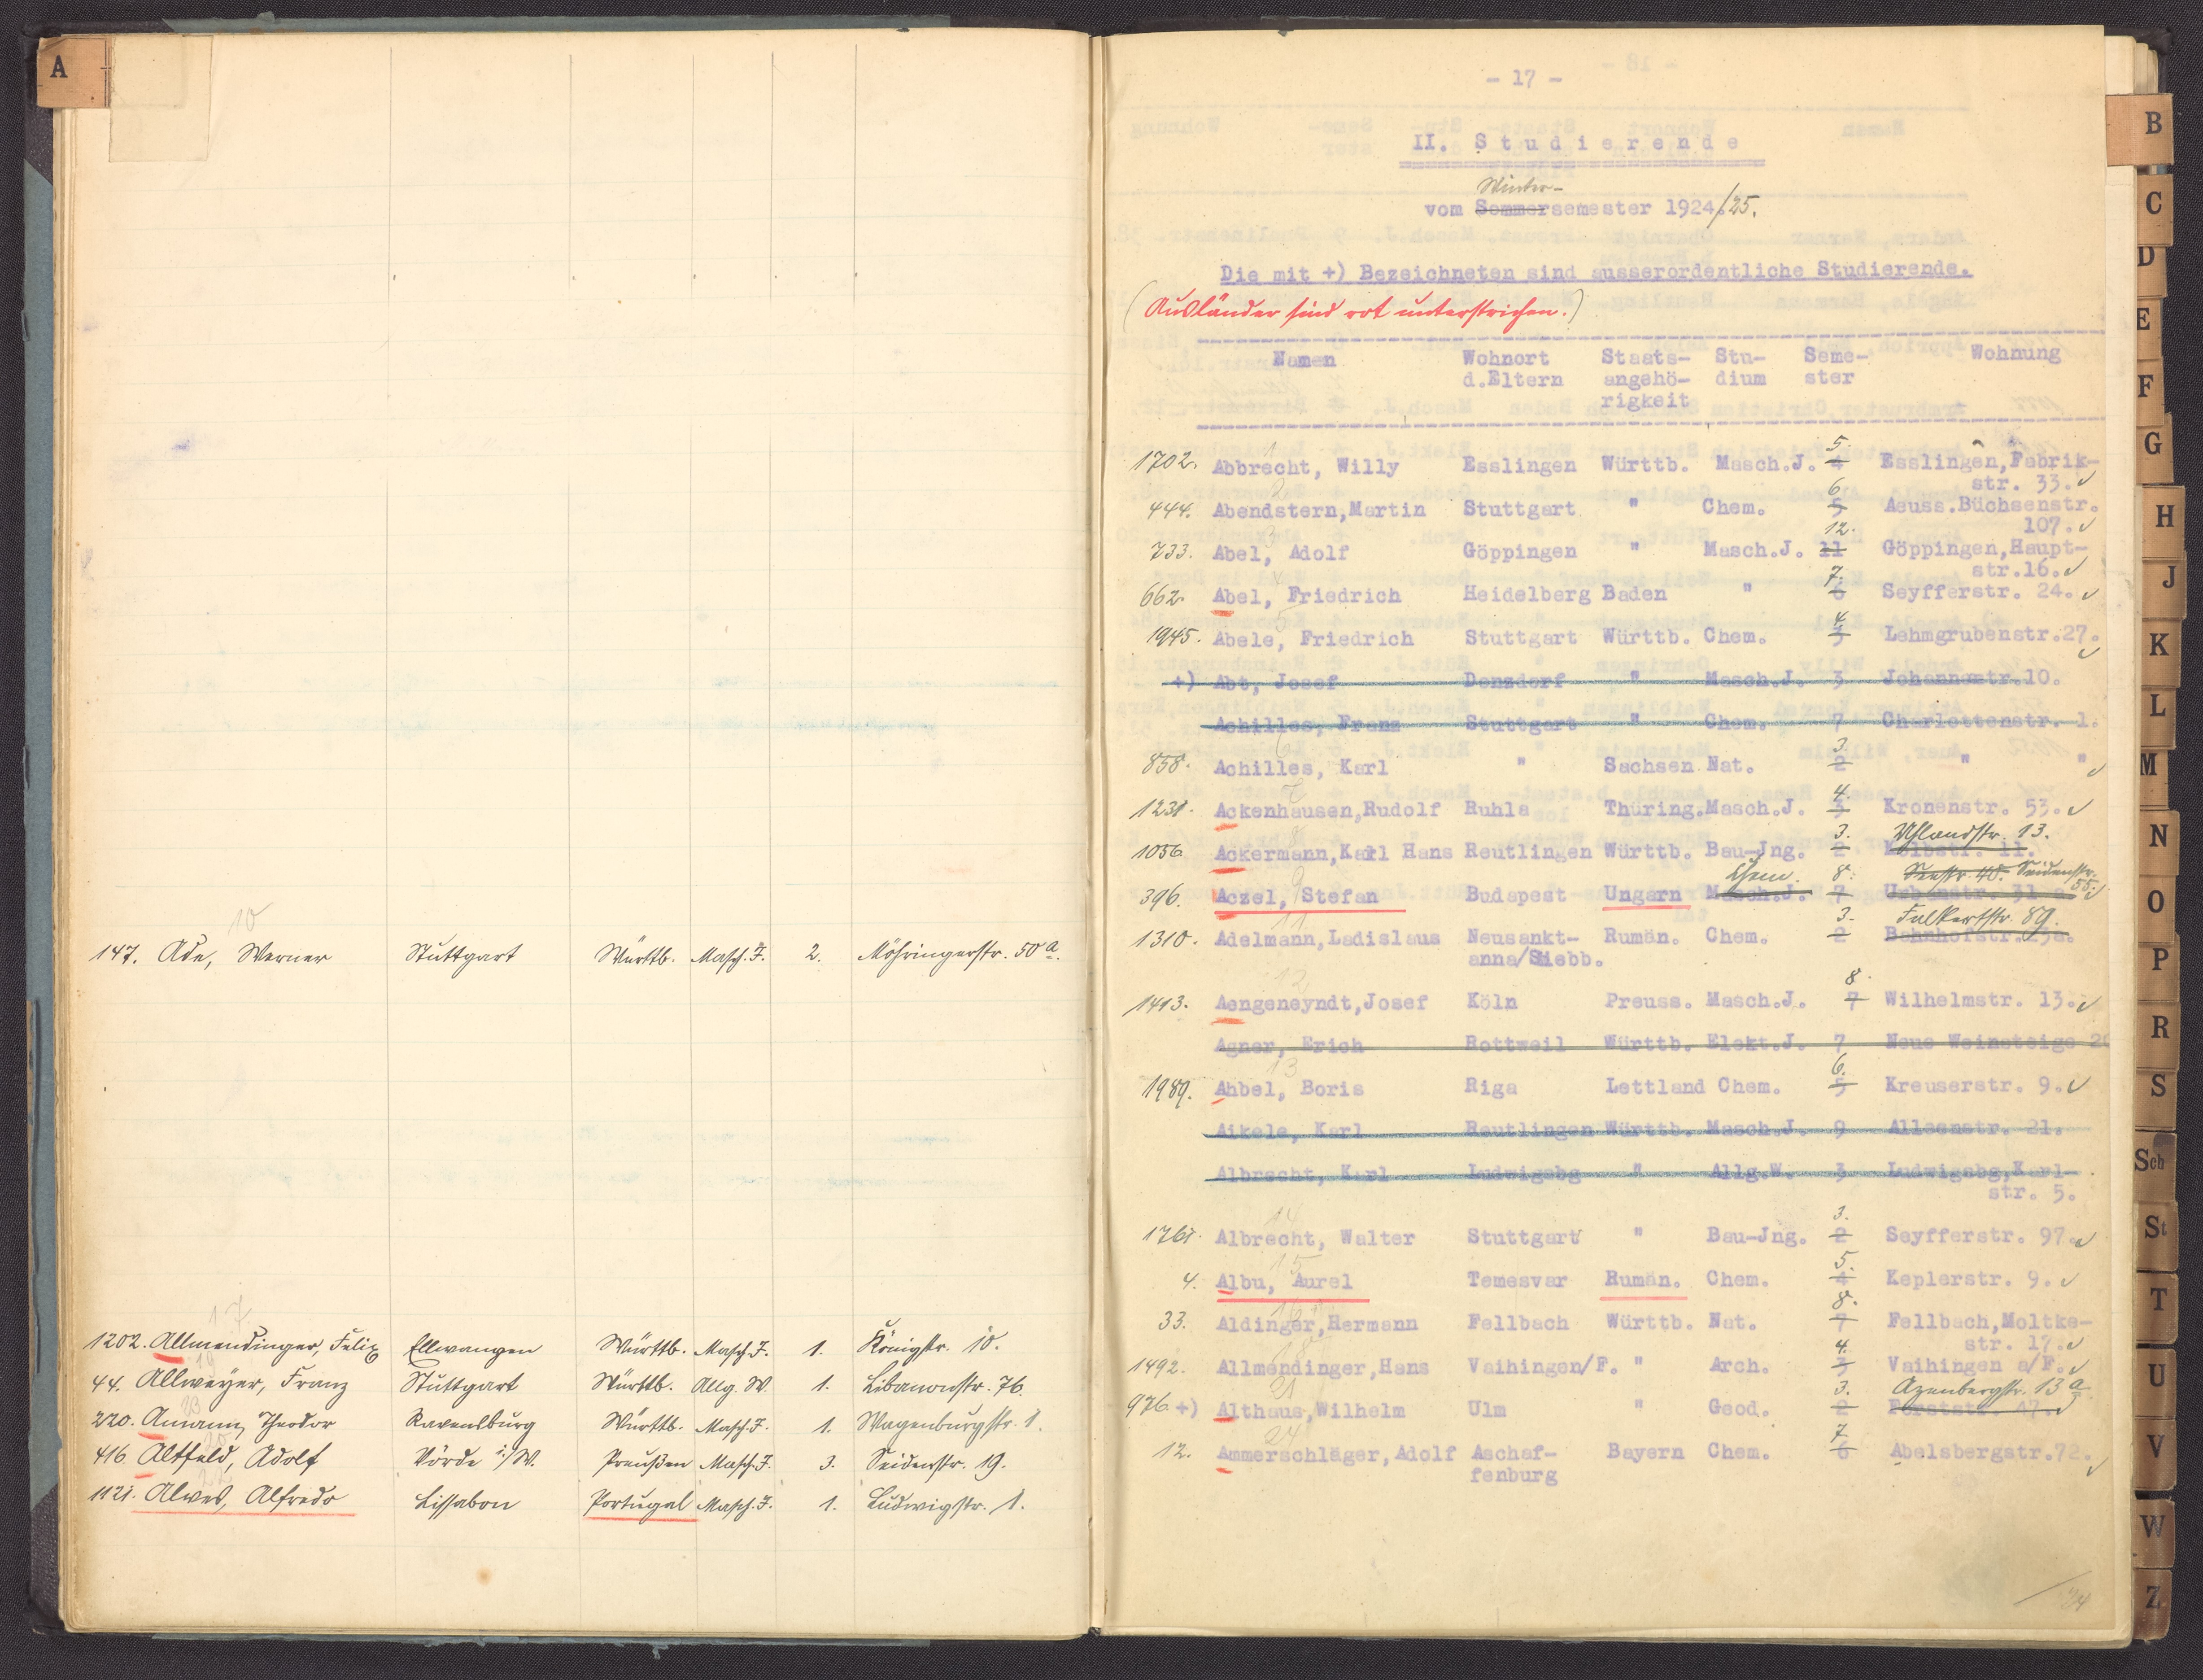 A
10
147. Ade, Werner Stuttgart Württb. Masch.J. 2. Möhringerstr. 50 a.
17
1202. Allmendinger, Felix Ellwangen Württb. Masch.J. 1. Königstr. 10.
19
44. Allweyer, Franz Stuttgart Württb. Allg. W. 1. Libanonstr. 76.
23
220. Amann, Theodor Ravensburg Württb. Masch.J. 1. Wagenburgstr. 1.
20
416. Altfeld, Adolf Vörde i/W. Preußen Masch.J. 3. Seidenstr. 19.
22
1121. Alves, Alfredo Lissabon Portugal Masch.J. 1. Ludwigstr. 1.
- 17 -
II. Studierende
Winter-
vom Sommersemester 1924/25.
Die mit +) Bezeichneten sind ausserordentliche Studierende.
(Ausländer sind rot unterstrichen.)
Namen Wohnort Staats- Stu- Seme- Wohnung
d.Eltern angehö- dium ster
rigkeit
1 5.
1702. Abbrecht, Willy Esslingen Württb. Masch.J. 4 Esslingen,Fabrik-
str. 33.
2 6
444. Abendstern,Martin Stuttgart " Chem. 5 Aeuss.Büchsenstr.
107.
3 12.
733. Abel, Adolf Göppingen " Masch.J. 11 Göppingen,Haupt-
str.16.
4 7.
662. Abel, Friedrich Heidelberg Baden " 6 Seyfferstr. 24.
5 4.
1945. Abele, Friedrich Stuttgart Württb. Chem. 3 Lehmgrubenstr.27.
+) Abt, Josef Donzdorf " Masch.J. 3 Johannestr.10.
Achilles, Franz Stuttgart " Chem. 7 Charlottenstr. 1.
6 3.
858. Achilles, Karl " Sachsen Nat. 2 " "
7 4.
1231. Ackenhausen,Rudolf Ruhla Thüring.Masch.J. 3 Kronenstr. 53.
8 3. Uhlandstr. 13.
1056 Ackermann,Karl Hans Reutlingen Württb. Bau-Jng. 2 11.
9 Chem. 8. Seestr. 40. Seidenstr. 55.
396. Aczel, Stefan Budapest Ungarn Masch.J. 7 Urbanstr. 31
11 3. Falkertstr. 89.
1310. Adelmann,Ladislaus Neusankt- Rumän. Chem. 2 Bahnhofstr.
anna/Siebb.
12 8.
1413. Aengeneyndt,Josef Köln Preuss. Masch.J. 7 Wilhelmstr. 13.
Agner, Erich Rottweil Württb. Elekt.J. 7 Neue Weinsteige
13 6.
1989. Ahbel, Boris Riga Lettland Chem. 5 Kreuserstr. 9.
Aikele, Karl Reutlingen Württb. Masch.J. 9 Alleenstr. 21.
Albrecht, Karl Ludwigsbg " Allg.W. 3 Ludwigsbg,Karl-
str. 5.
14 3.
1761. Albrecht, Walter Stuttgart " Bau-Jng. 2 Seyfferstr. 97.
15 5.
4. Albu, Aurel Temesvar Rumän. Chem. 4 Keplerstr. 9.
16 8.
33. Aldinger,Hermann Fellbach Württb. Nat. 7 Fellbach,Moltke-
str. 17.
18 4.
1492. Allmendinger,Hans Vaihingen/F. " Arch. 3 Vaihingen a/F.
21 3. Azenbergstr. 13 a
976 +) Althaus,Wilhelm Ulm " Geod. 2 Forststr. 47.
24 7
12. Ammerschläger, Adolf Aschaf- Bayern Chem. 6 Abelsbergstr.72.
fenburg
24
B
C
D
E
F
G
H
J
K
L
M
N
O
P
R
S
Sch
St
T
U
V
W
Z